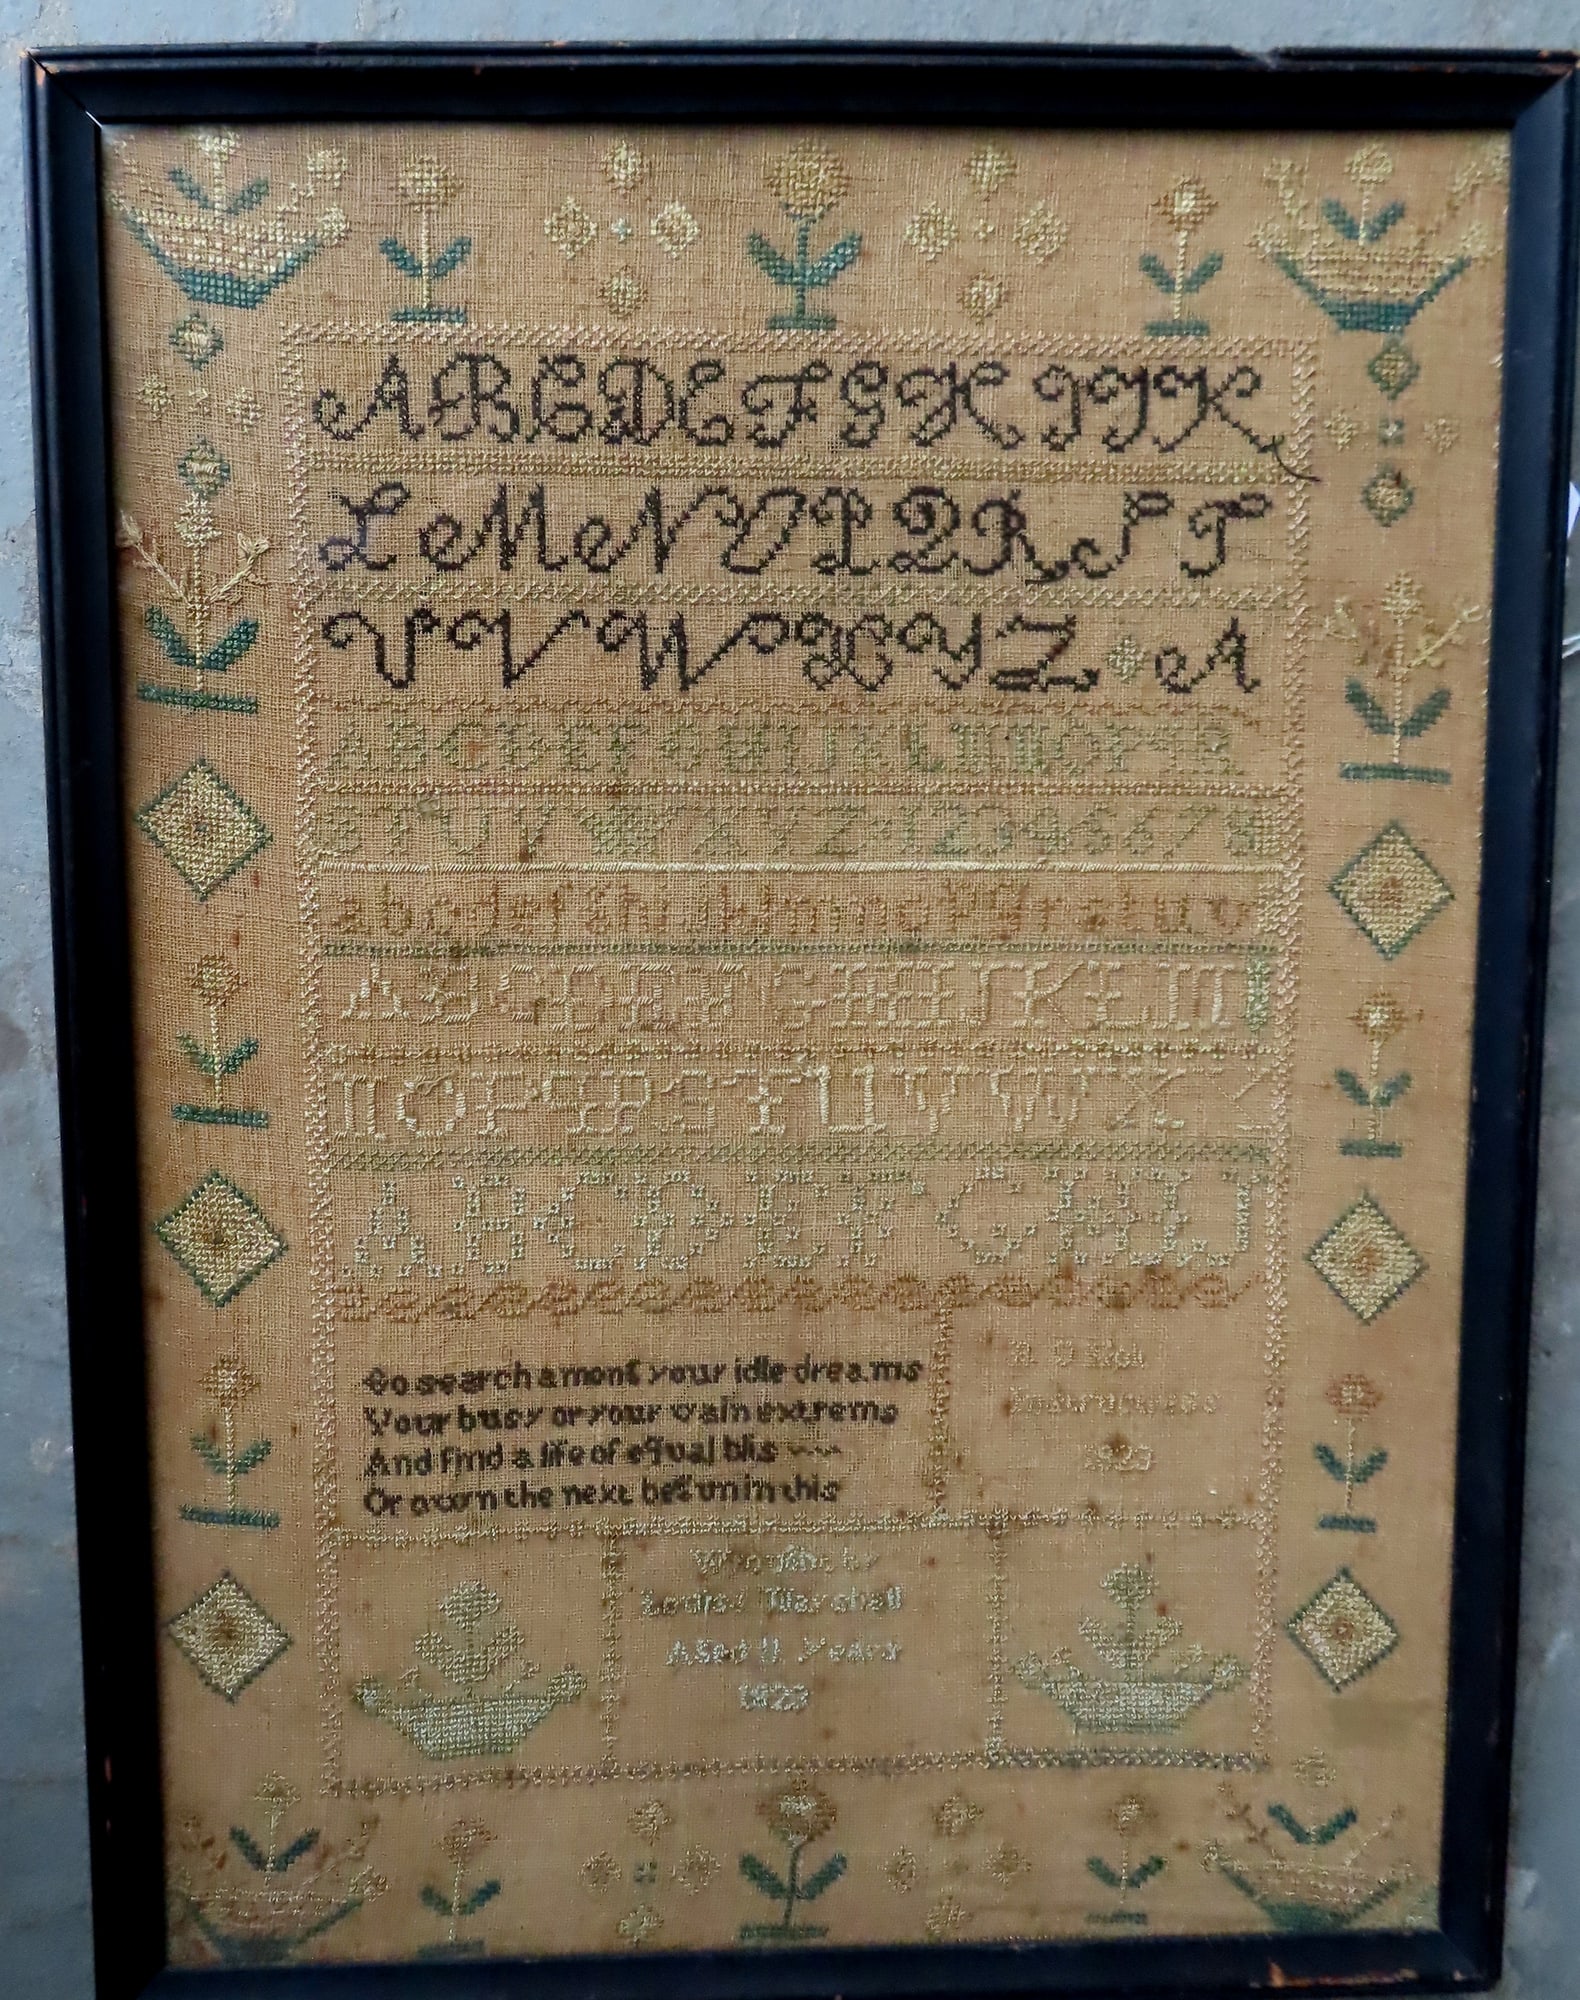 A B C D E F G H I J K
L M N O P Q R S T
U V W X Y Z A
A B C D E F G H I J K L M N O P Q R
S T U V W X Y Z 1 2 3 4 5 6 7 8
a b c d e f g h i j k l m n o p q r s t u v
A B C D E F G H I J K L M
N O P Q R S T U V W X
A B C D E F G H I J
Go search among your idle dreams
Your busy or your vain extrems
And find a life of equal blis
Or own the next begun in this
1823
Wrought by
Marshall
Aged 11 Years
1823